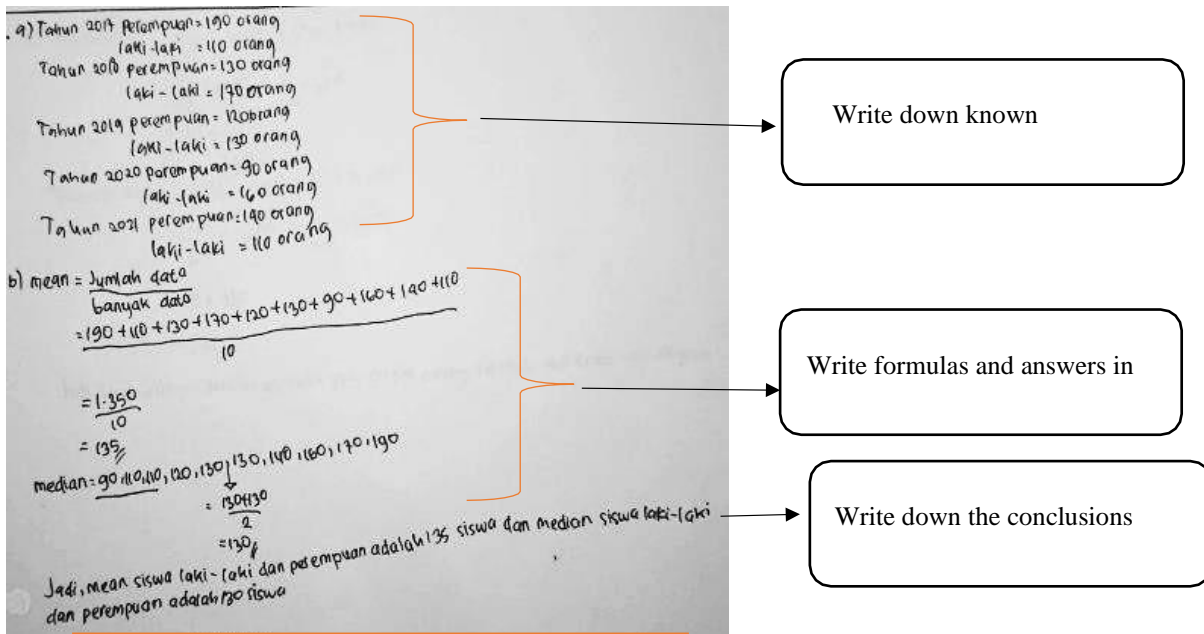 . a) Tahun 2017 Perempuan = 190 orang
laki-laki = 110 orang
Tahun 2018 perempuan = 130 orang
laki-laki = 170 orang
Tahun 2019 perempuan = 120 orang
laki-laki = 130 orang
Tahun 2020 perempuan = 90 orang
laki-laki = 160 orang
Tahun 2021 perempuan = 140 orang
laki-laki = 110 orang
b) mean = Jumlah data
banyak data
= 190 + 110 + 130 + 170 + 120 + 130 + 90 + 160 + 140 + 110
10
= 1.350
10
= 135
median = 90, 110, 110, 120, 130, 130, 140, 160, 170, 190
= 130+130
2
= 130
Jadi, mean siswa laki-laki dan perempuan adalah 135 siswa dan median siswa laki-laki
dan perempuan adalah 130 siswa
Write down known
Write formulas and answers in
Write down the conclusions